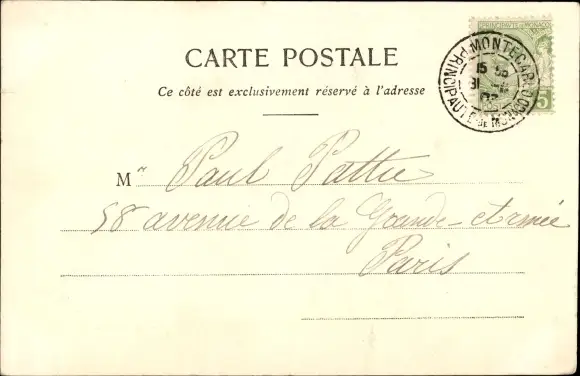 PRINCIPAUTÉ DE MONACO
MONTE CARLO
PRINCIPAUTÉ DE MONACO
15
31
5
CARTE POSTALE
Ce côté est exclusivement réservé à l'adresse
Mr Paul Pattie
58 avenue de la Grande-Armée
Paris